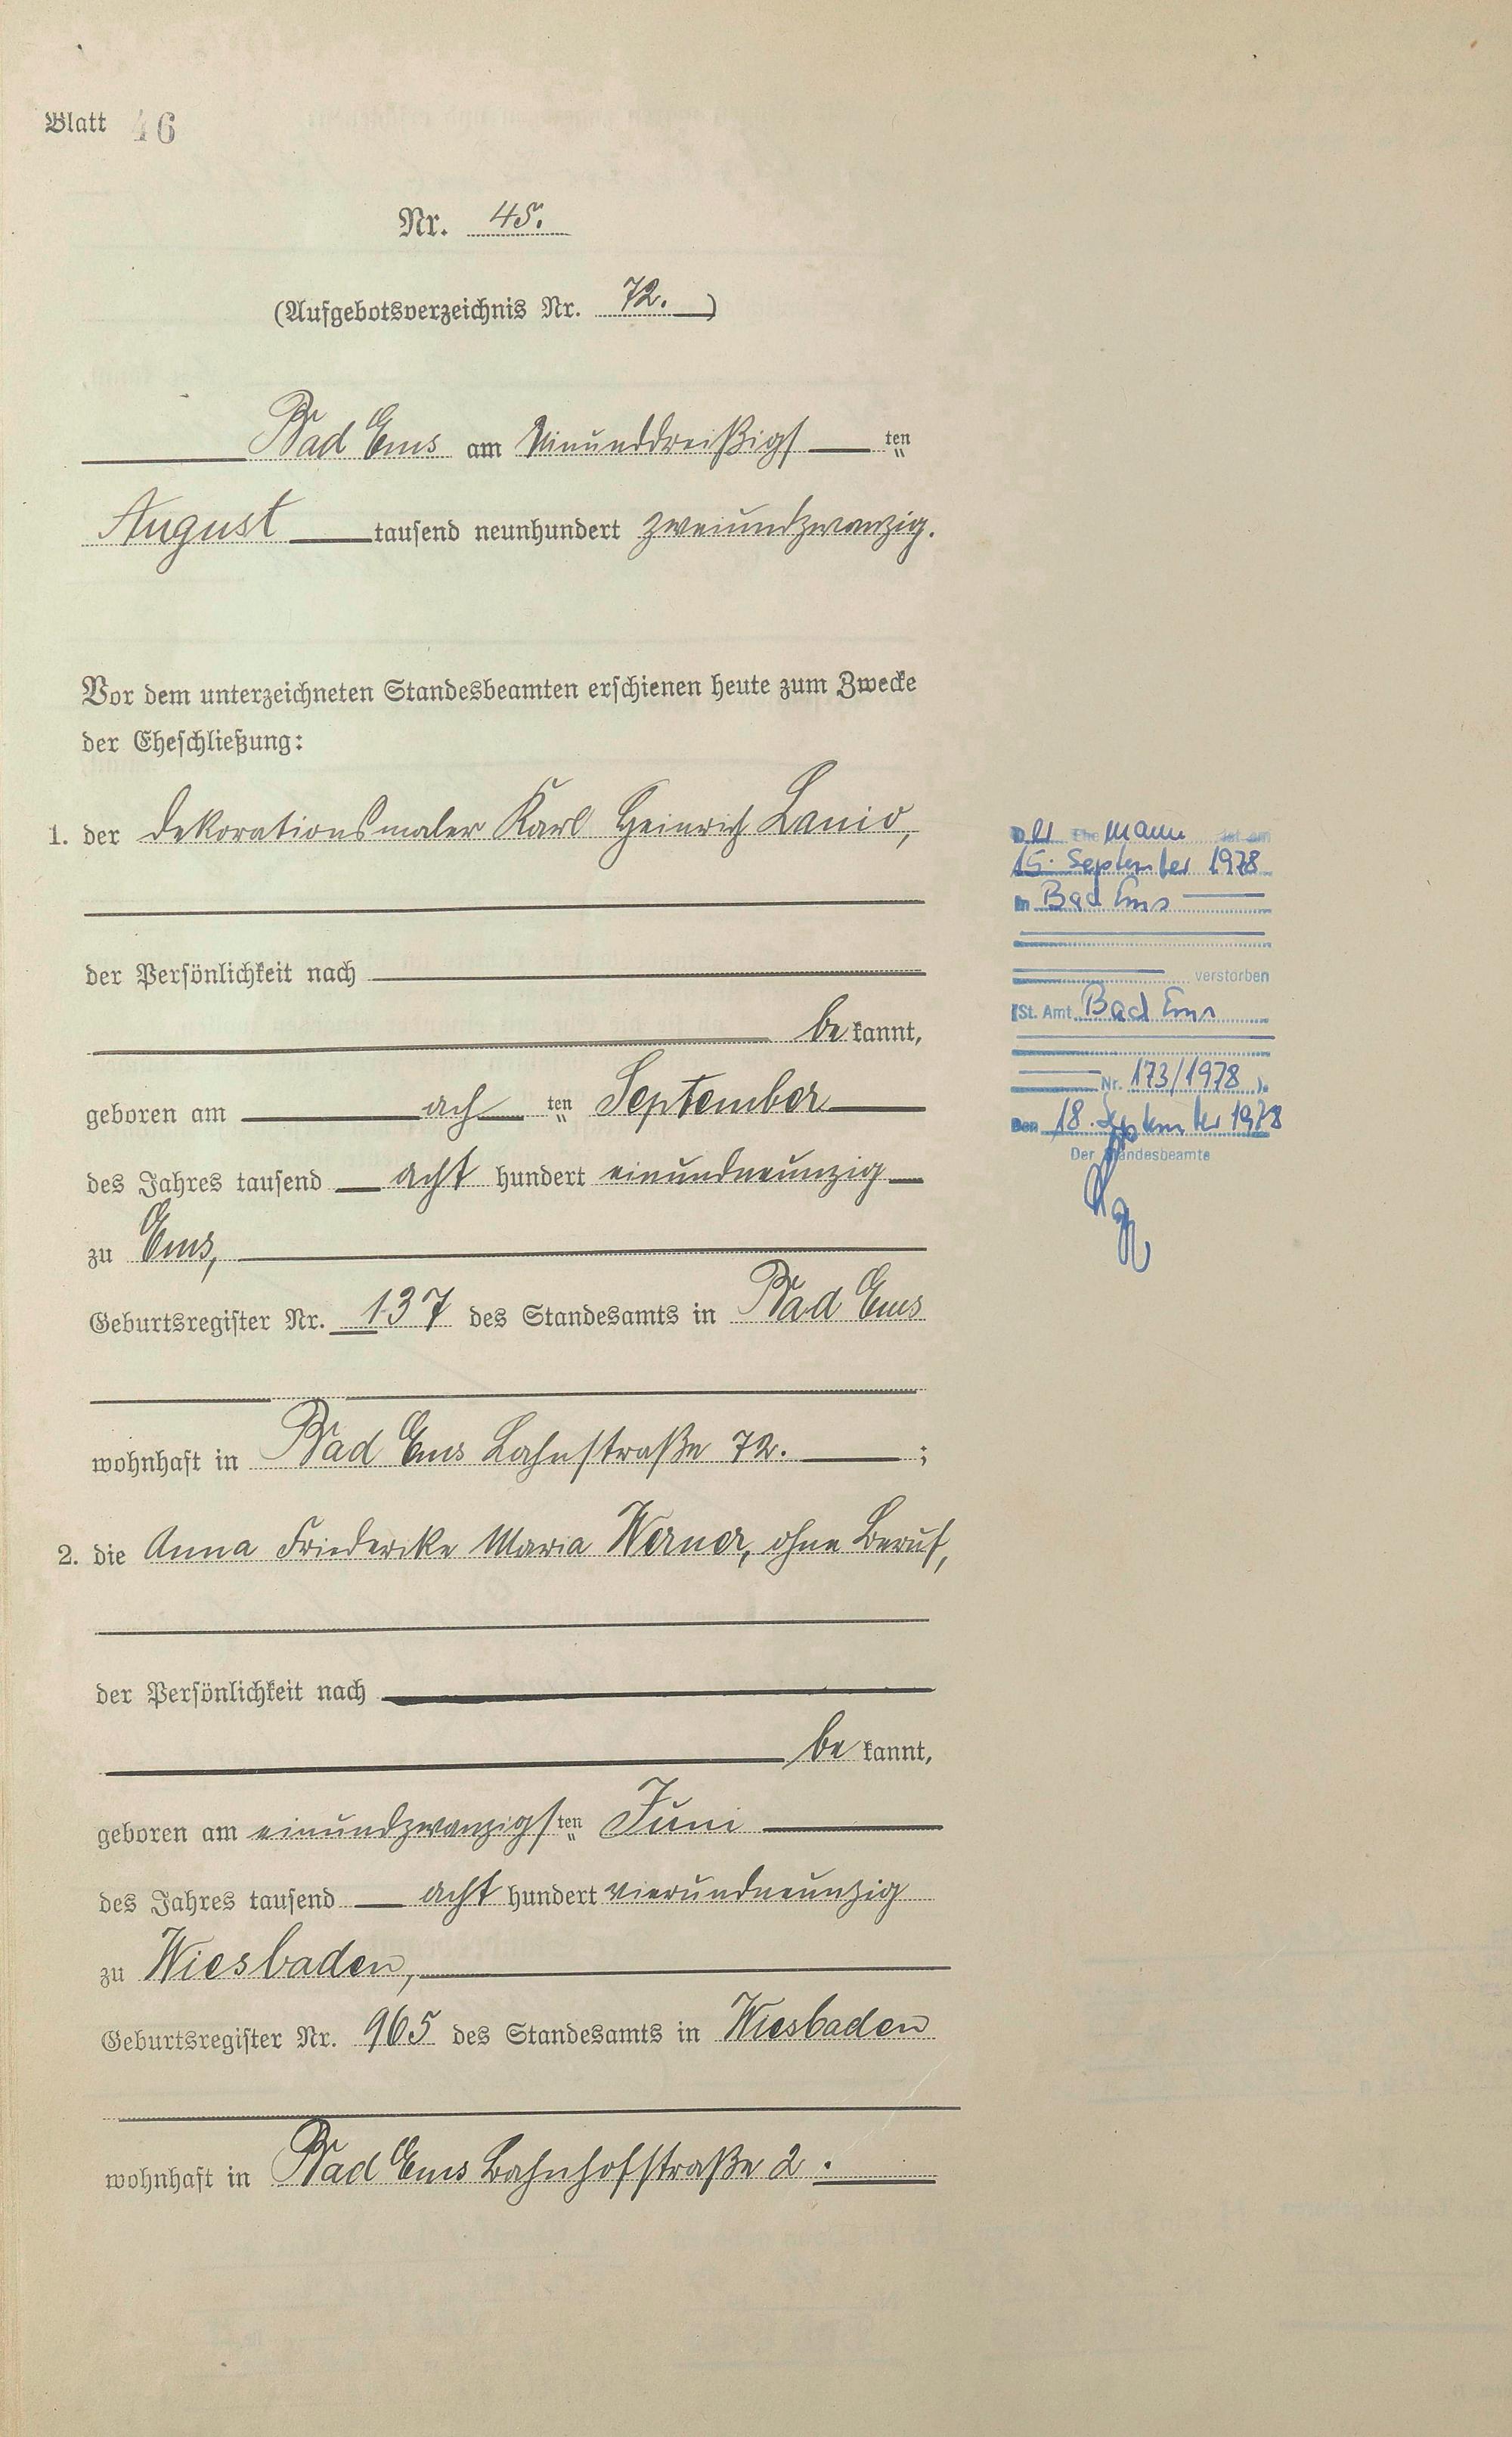 Blatt 46
Nr. 45.
(Aufgebotsverzeichnis Nr. 72.)
Bad Ems am einunddreißigsten
August tausend neunhundert zweiundzwanzig.
Vor dem unterzeichneten Standesbeamten erschienen heute zum Zwecke
der Eheschließung:
1. der Dekorationsmaler Karl Heinrich Lanio,
der Persönlichkeit nach
bekannt,
geboren am achten September
des Jahres tausend acht hundert einundneunzig
zu Ems,
Geburtsregister Nr. 137 des Standesamts in Bad Ems
wohnhaft in Bad Ems Lahnstraße 72. ;
2. die Anna Friederike Maria Werner, ohne Beruf,
der Persönlichkeit nach
bekannt,
geboren am einundzwanzigsten Juni
des Jahres tausend acht hundert vierundneunzig
zu Wiesbaden,
Geburtsregister Nr. 965 des Standesamts in Wiesbaden
wohnhaft in Bad Ems Bahnhofstraße 2.
Der Ehemann ist am
15. September 1978
in Bad Ems
verstorben
(St. Amt Bad Ems
Nr. 173/1978 ).
Den 18. September 1978
Der Standesbeamte